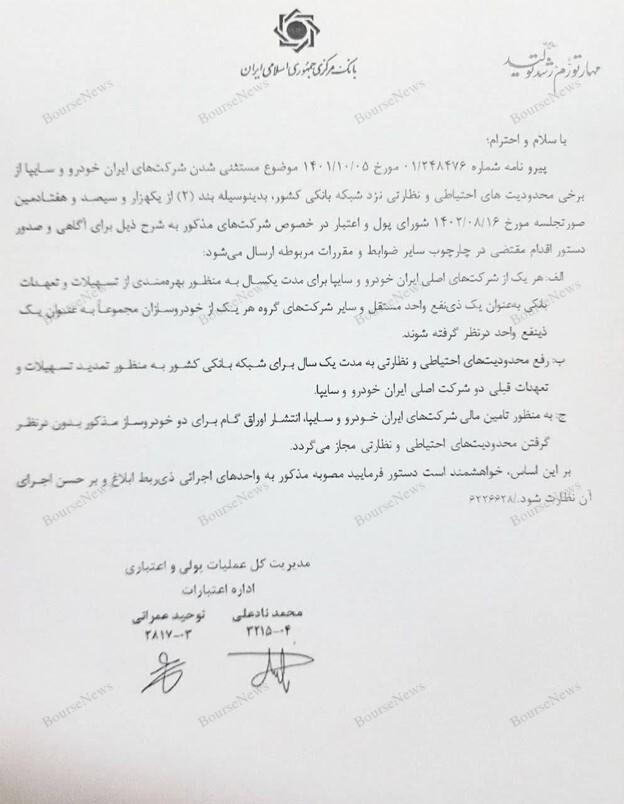 بانک مرکزی جمهوری اسلامی ایران
مهار تورم رشد تولید
با سلام و احترام؛
پیرو نامه شماره ۰۱/۲۴۸۴۷۶ مورخ ۱۴۰۱/۱۰/۰۵ موضوع مستثنی شدن شرکت‌های ایران خودرو و سایپا از
برخی محدودیت های احتیاطی و نظارتی نزد شبکه بانکی کشور، بدینوسیله بند (۲) از یکهزار و سیصد و هفتادمین
صورتجلسه مورخ ۱۴۰۲/۰۸/۱۶ شورای پول و اعتبار در خصوص شرکت‌های مذکور به شرح ذیل برای آگاهی و صدور
دستور اقدام مقتضی در چارچوب سایر ضوابط و مقررات مربوطه ارسال می‌شود:
الف: هر یک از شرکت‌های اصلی ایران خودرو و سایپا برای مدت یکسال به منظور بهره‌مندی از تسهیلات و تعهدات
بانکی به‌عنوان یک ذی‌نفع واحد مستقل و سایر شرکت‌های گروه هر یک از خودروسازان مجموعاً به عنوان یک
ذینفع واحد درنظر گرفته شوند.
ب: رفع محدودیت‌های احتیاطی و نظارتی به مدت یک سال برای شبکه بانکی کشور به منظور تمدید تسهیلات و
تعهدات قبلی دو شرکت اصلی ایران خودرو و سایپا.
ج: به منظور تامین مالی شرکت‌های ایران خودرو و سایپا، انتشار اوراق گام برای دو خودروساز مذکور بدون درنظر
گرفتن محدودیت‌های احتیاطی و نظارتی مجاز می‌گردد.
بر این اساس، خواهشمند است دستور فرمایید مصوبه مذکور به واحدهای اجرائی ذی‌ربط ابلاغ و بر حسن اجرای
آن نظارت شود./۶۲۲۶۶۲۸
مدیریت کل عملیات پولی و اعتباری
اداره اعتبارات
محمد نادعلی توحید عمرانی
۳۲۱۵-۰۴ ۲۸۱۷-۰۳
BourseNews BourseNews BourseNews BourseNews
BourseNews BourseNews BourseNews BourseNews
BourseNews BourseNews BourseNews BourseNews
BourseNews BourseNews BourseNews BourseNews
BourseNews BourseNews BourseNews BourseNews